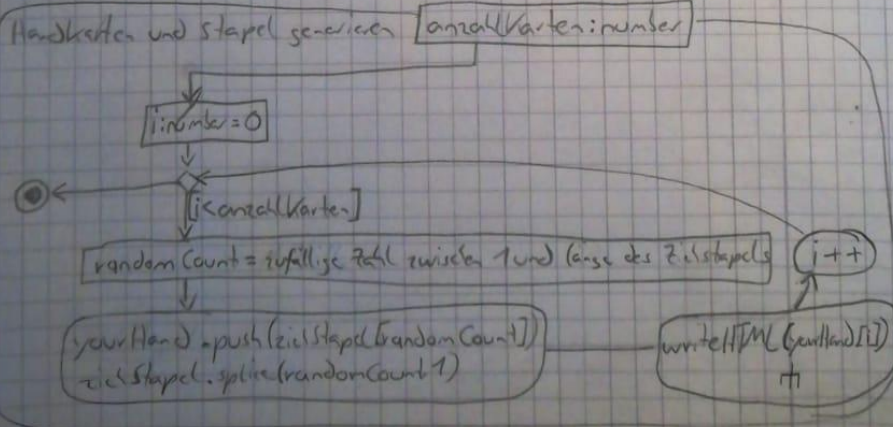 Handkarten und Stapel generieren
anzahlKarten:number
i:number = 0
[i<anzahlKarten]
randomCount = zufällige Zahl zwischen 1 und Länge des Zielstapels
i++
yourHand.push(zielStapel[randomCount])
zielStapel.splice(randomCount 1)
writeHTML(yourHand[i])